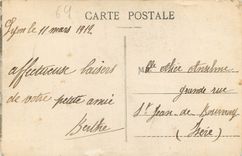 69
CARTE POSTALE
11 mars 1912
affectueux baisers
de votre petite amie
Berthe
Anselme
grande rue
St Jean de Bournay
(Isère)